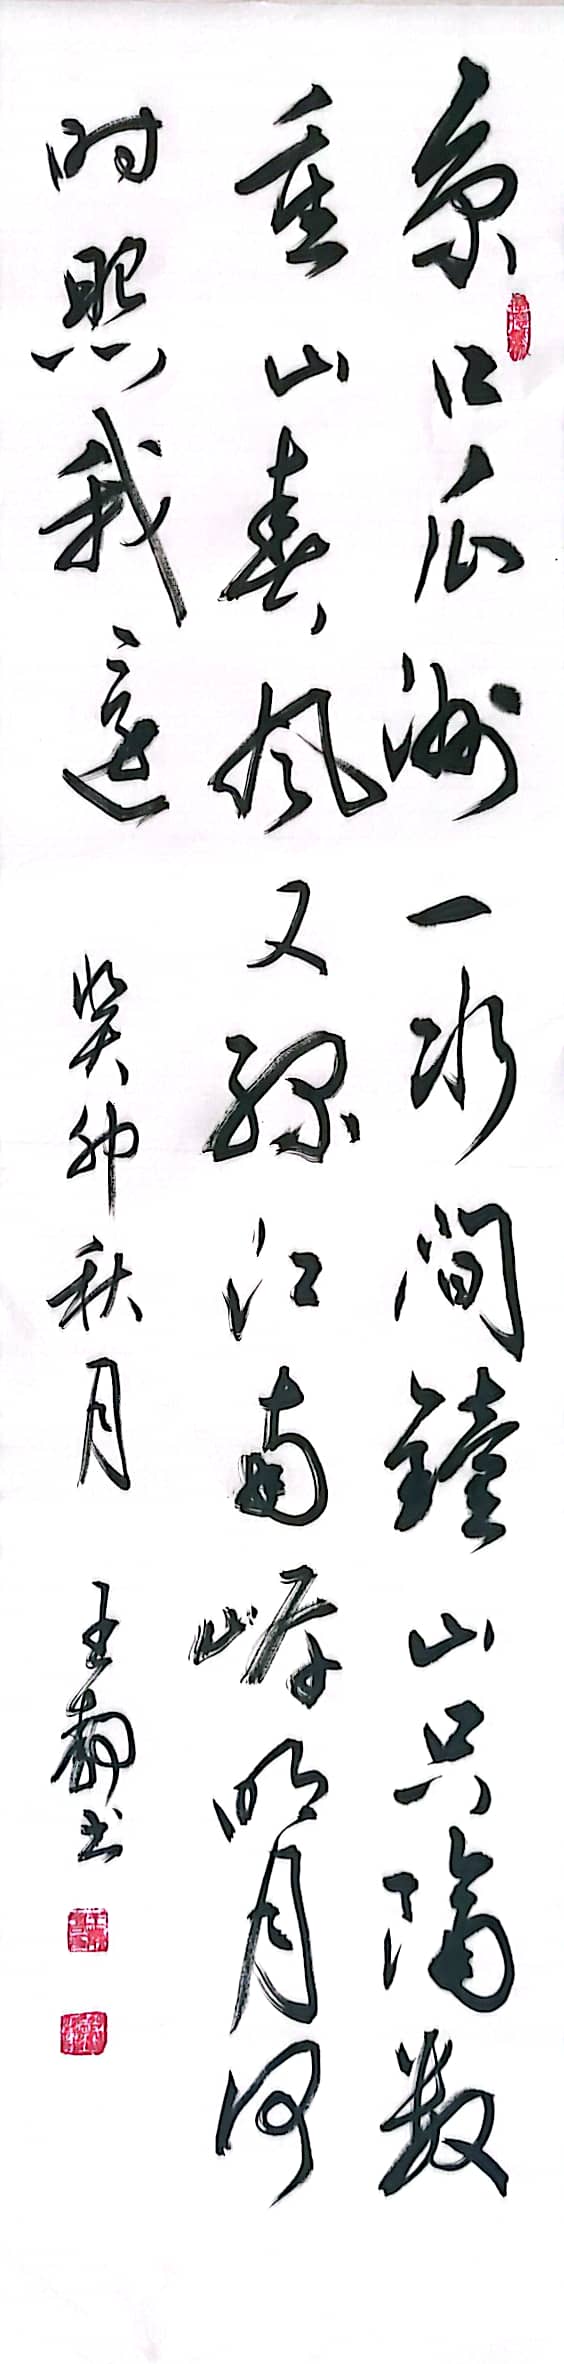 京口瓜洲一水间鐘山只隔数
重山春风又绿江南岸明月何
时照我還
癸卯秋月
王书